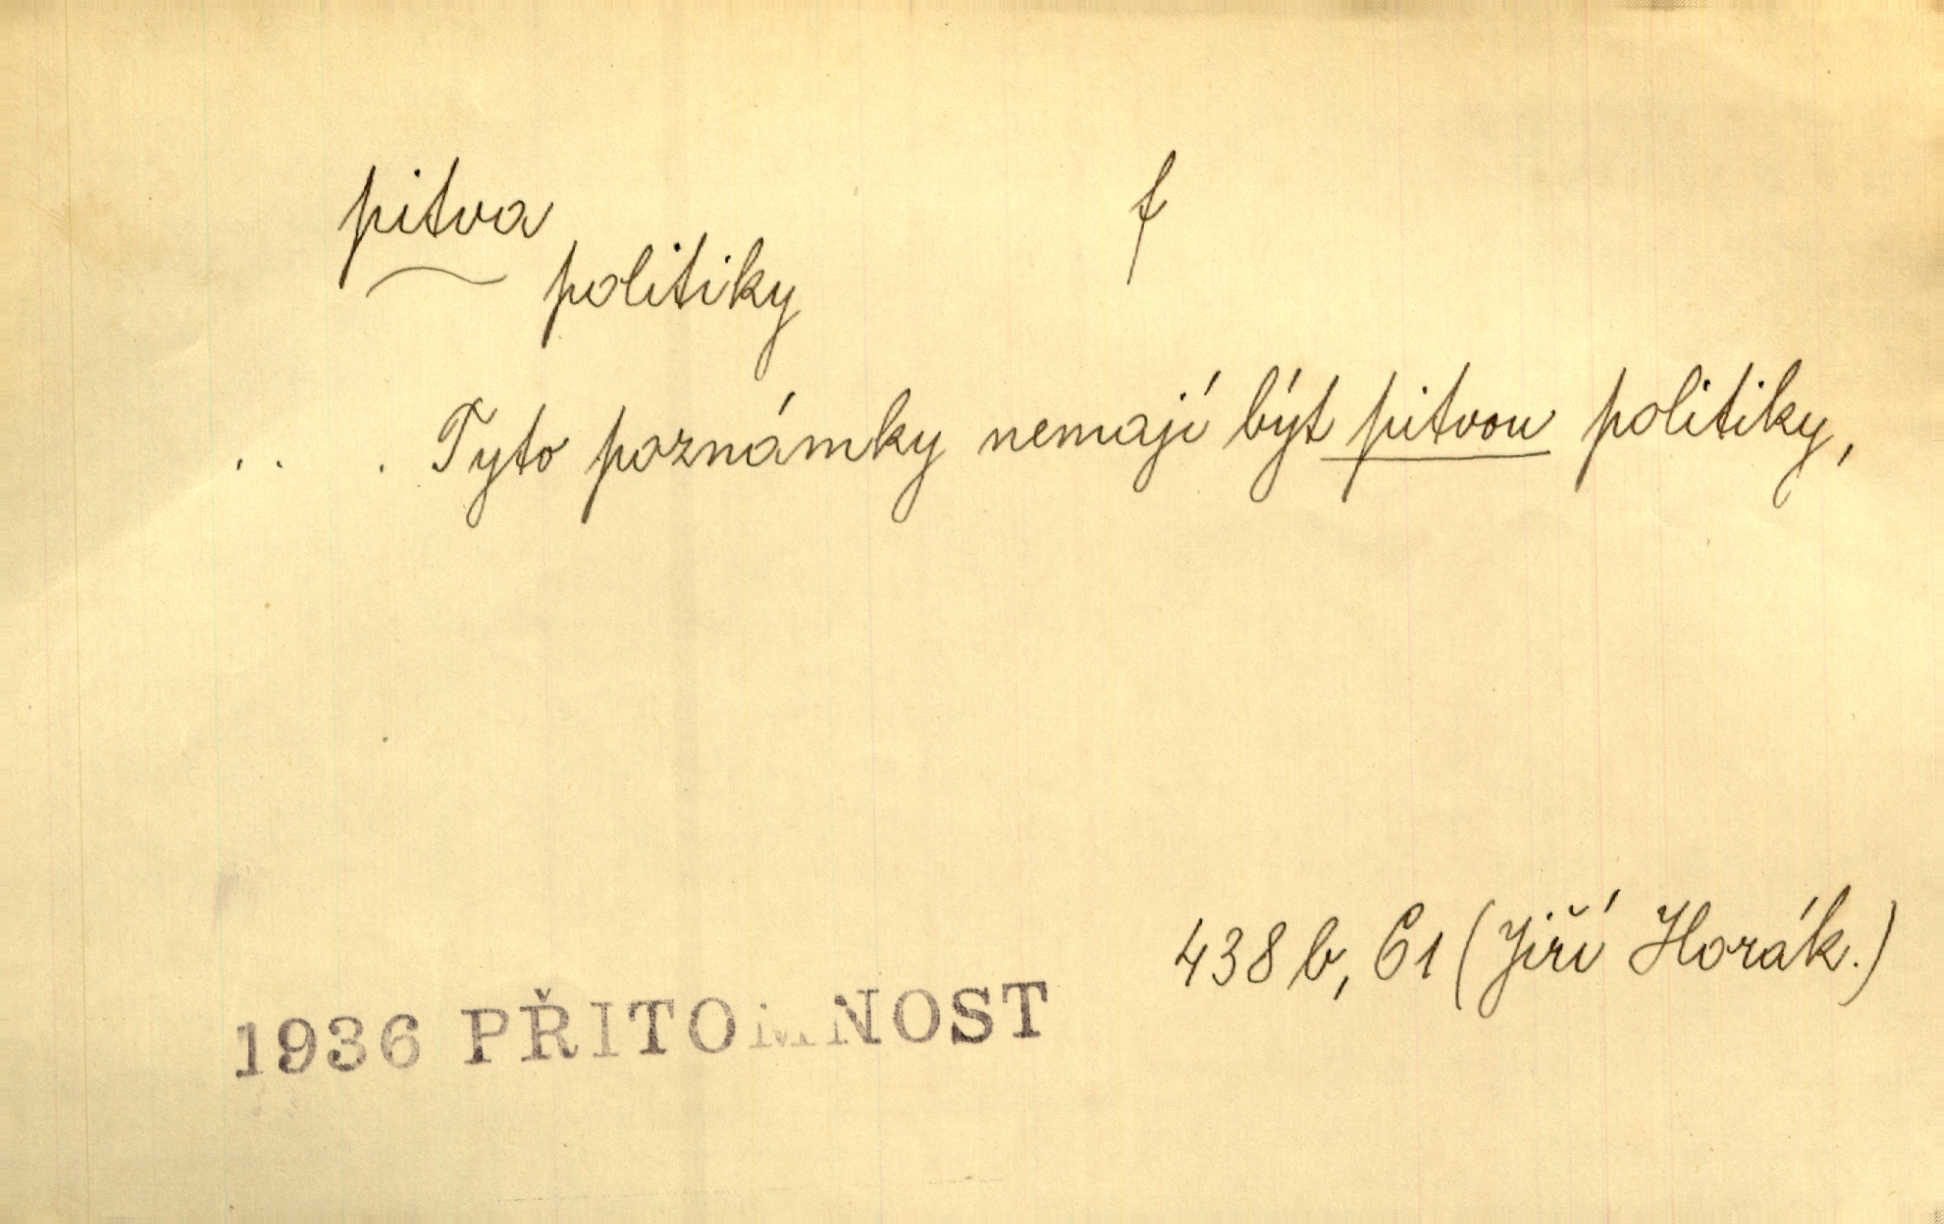 pitva f
politiky
. . . Tyto poznámky nemají být pitvou politiky,
438 b, 61 (Jiří Horák.)
1936 PŘITOMNOST